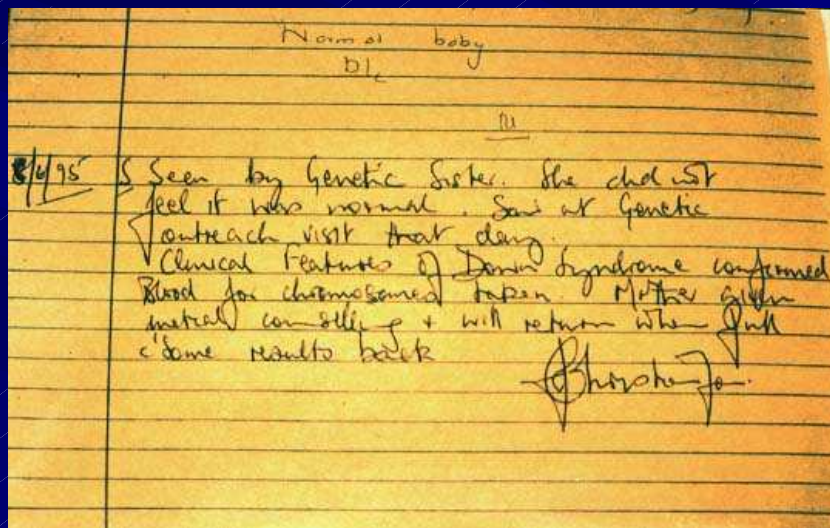 Normal baby
D/c
8/6/95 S Seen by Genetic Sister. She did not
feel it was normal. Saw at Genetic
outreach visit that day.
Clinical Features of Down Syndrome confirmed
Blood for chromosomes taken. Mother given
counselling + will return when full
c'some results back